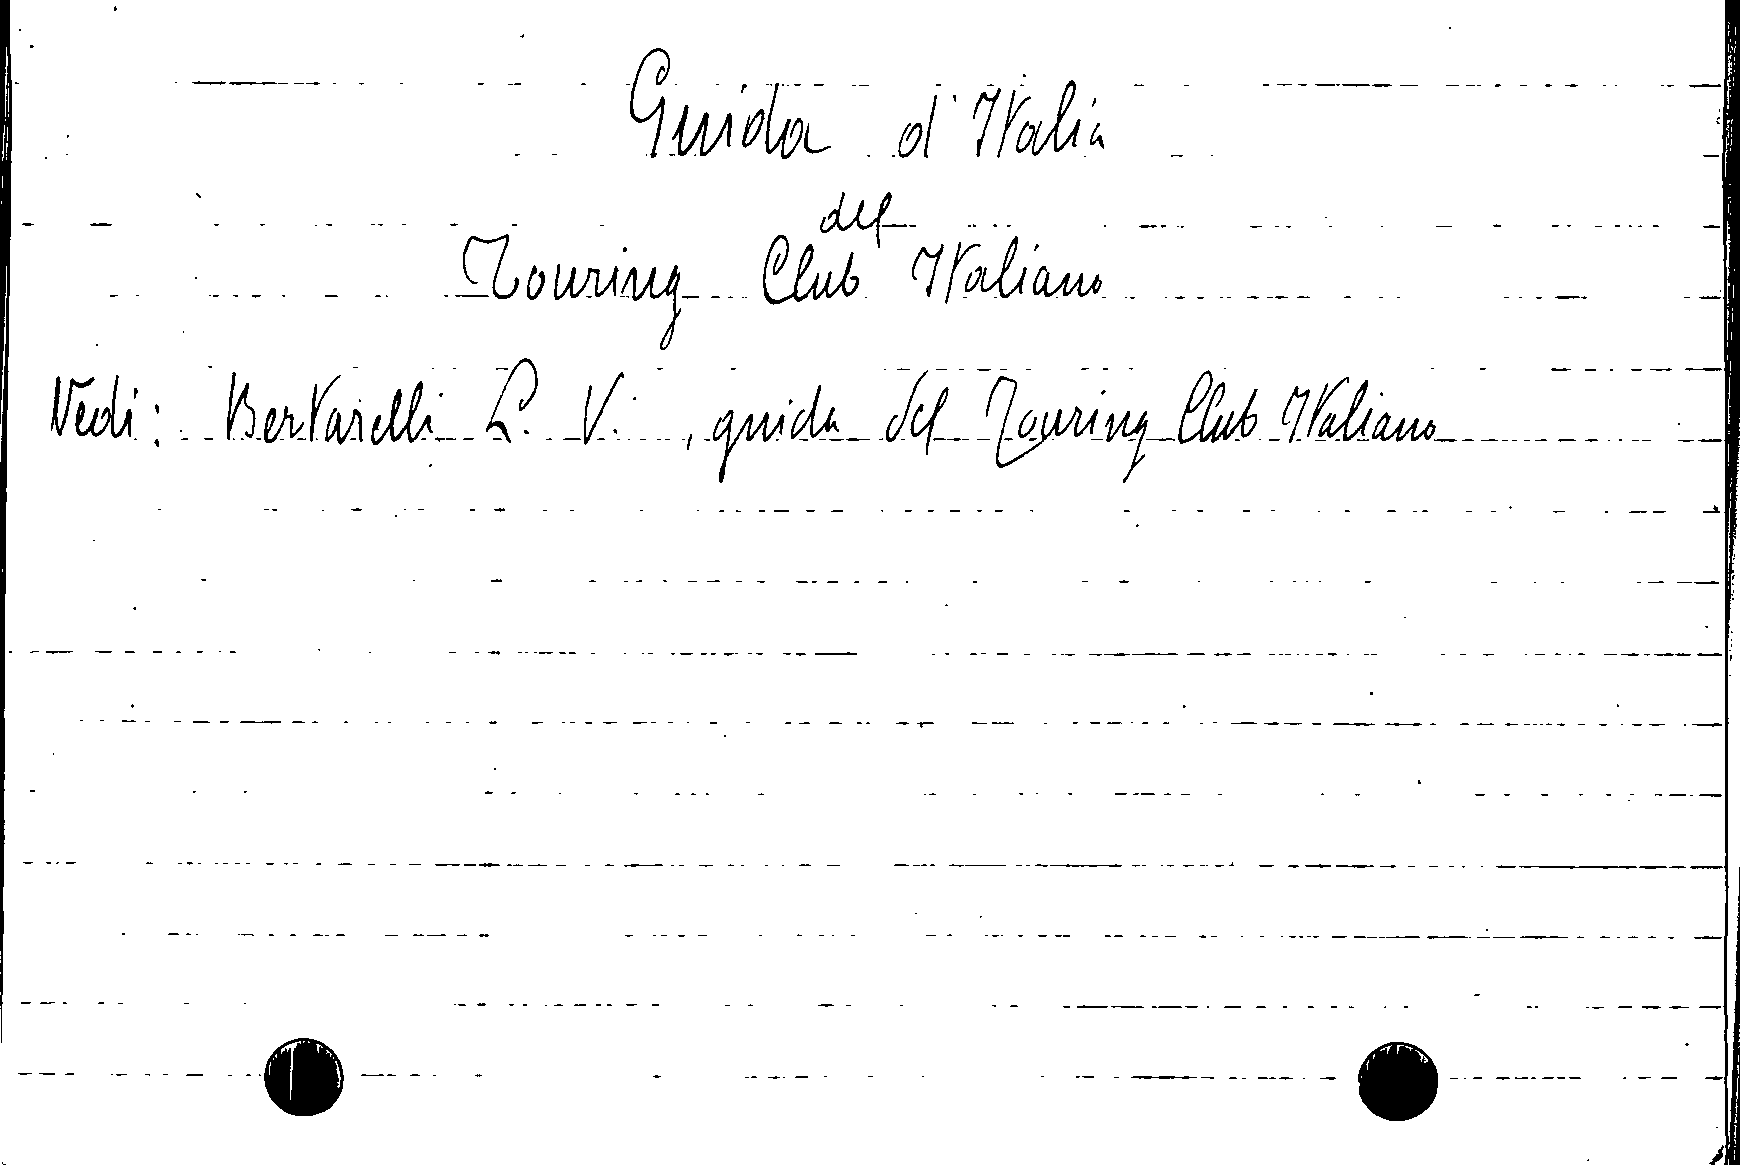 Guida d'Italia
del
Touring Club Italiano
Vedi: Bertarelli L. V. , guida del Touring Club Italiano